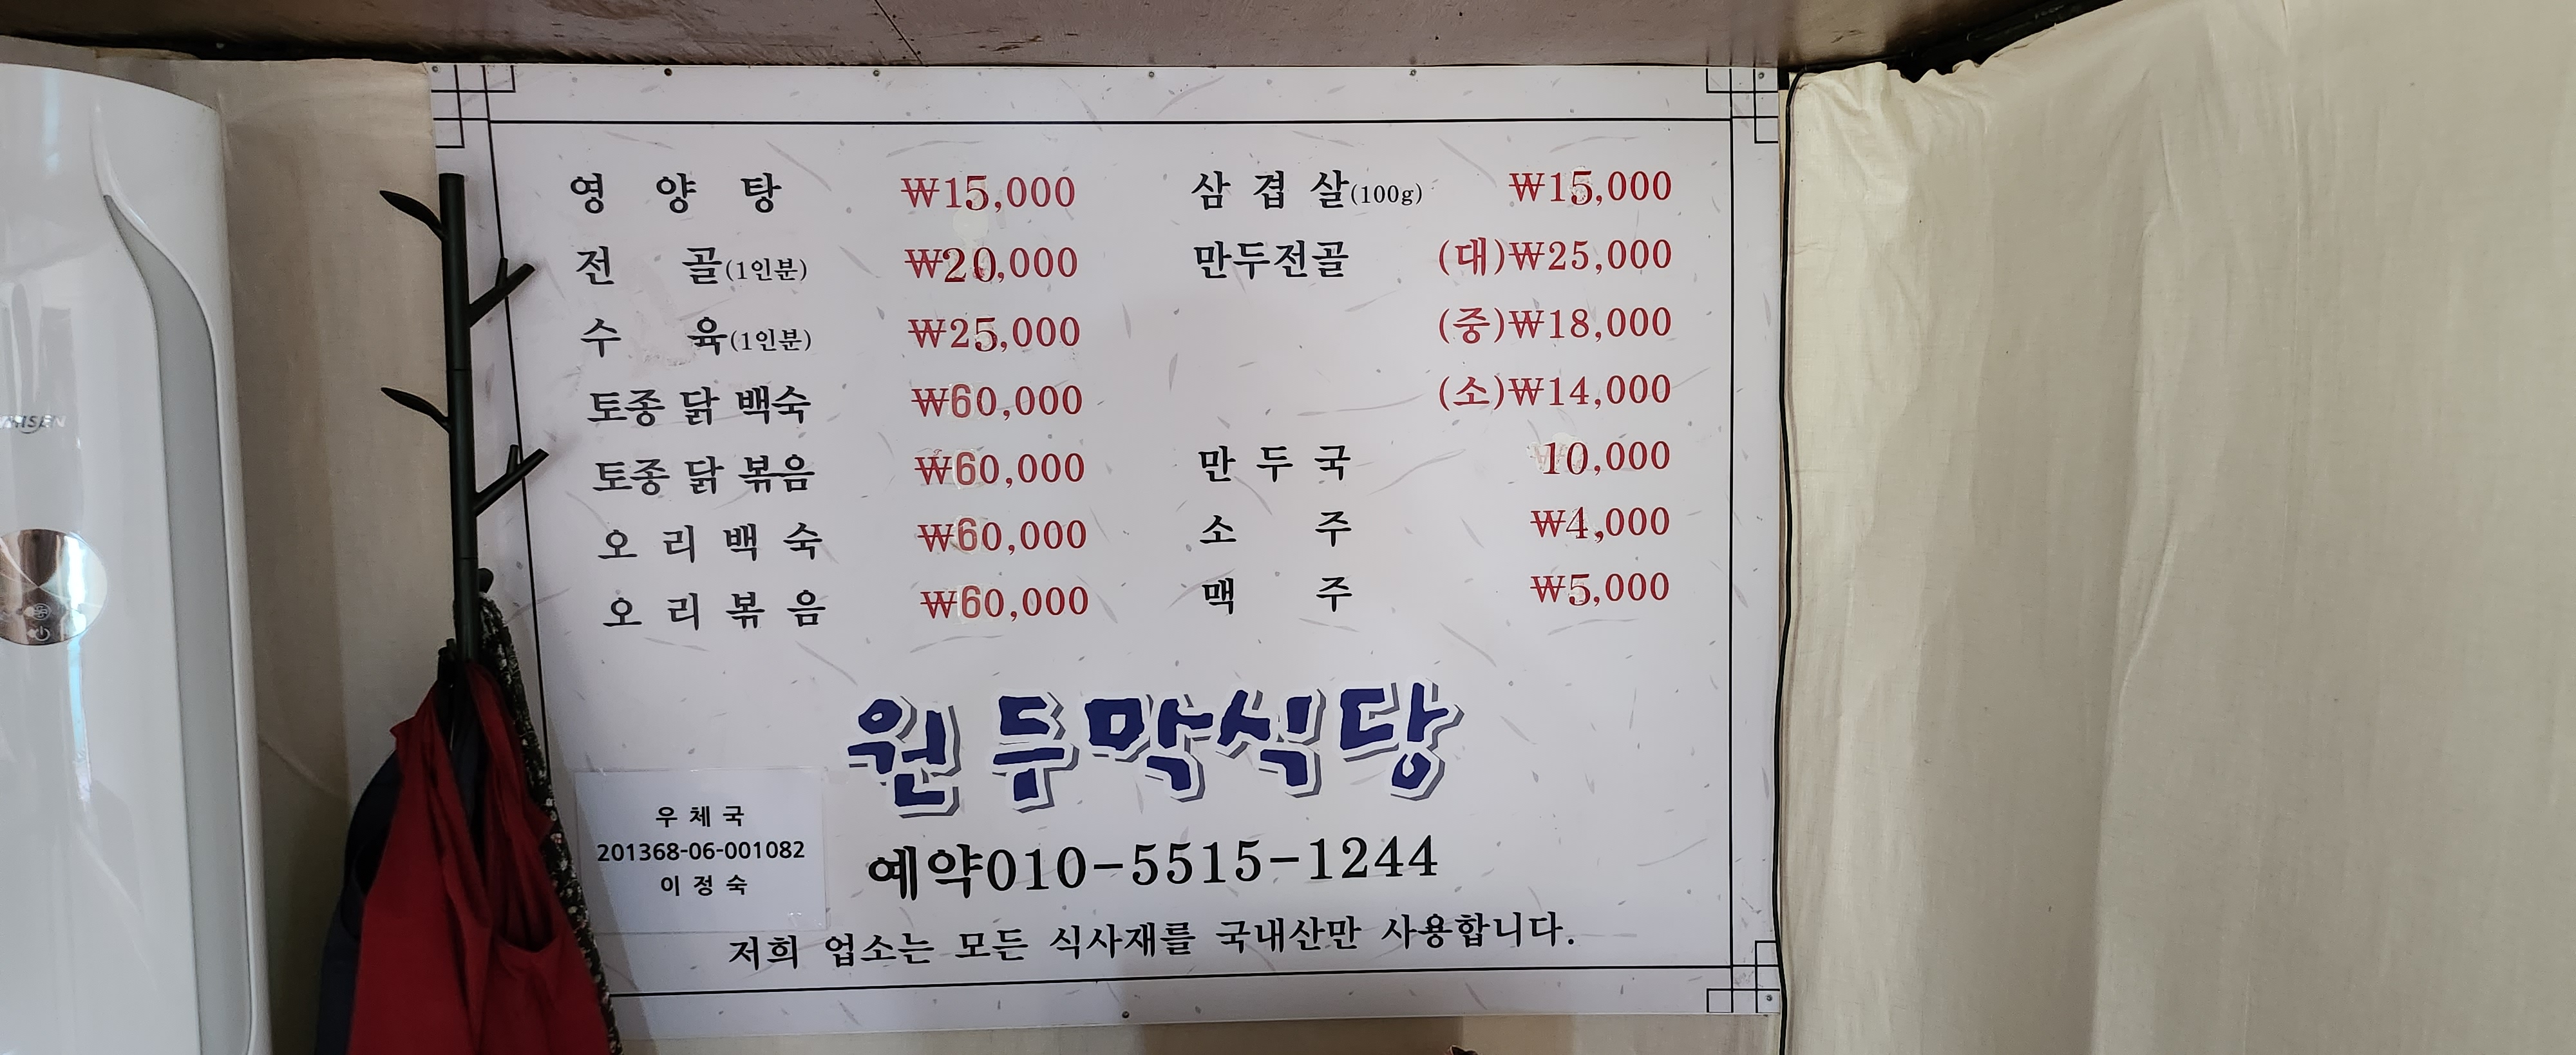 영 양 탕 ₩15,000
전 골(1인분) ₩20,000
수 육(1인분) ₩25,000
토종 닭 백숙 ₩60,000
토종 닭 볶음 ₩60,000
오 리 백 숙 ₩60,000
오 리 볶 음 ₩60,000
삼 겹 살(100g) ₩15,000
만두전골 (대)₩25,000
(중)₩18,000
(소)₩14,000
만 두 국 10,000
소 주 ₩4,000
맥 주 ₩5,000
원두막식당
예약010-5515-1244
우 체 국
201368-06-001082
이 정 숙
저희 업소는 모든 식사재를 국내산만 사용합니다.